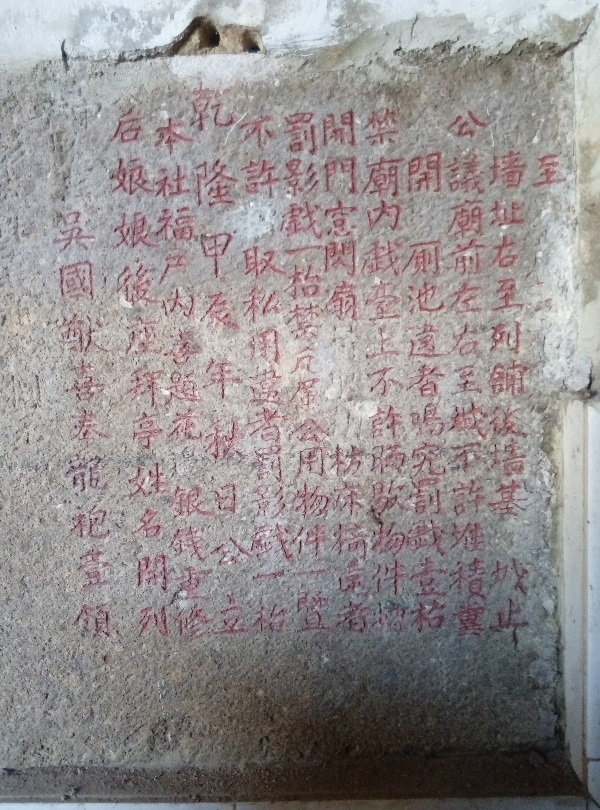 至
墻址右至列舖後墻基 城止
公議廟前左右至城不許堆積糞
開 厠池違者鳴究罰戲壹枱
禁廟內戲臺上不許晒散物件
開門窓閃扇 者
罰影戲一枱禁 公用物件一暨
不許 取私用 者罰影戲一枱
乾隆甲辰年秋日公立
本社福戶內 題花 銀錢重修
后娘娘後座拜亭姓名開列
吳國猷喜奉龍袍壹領